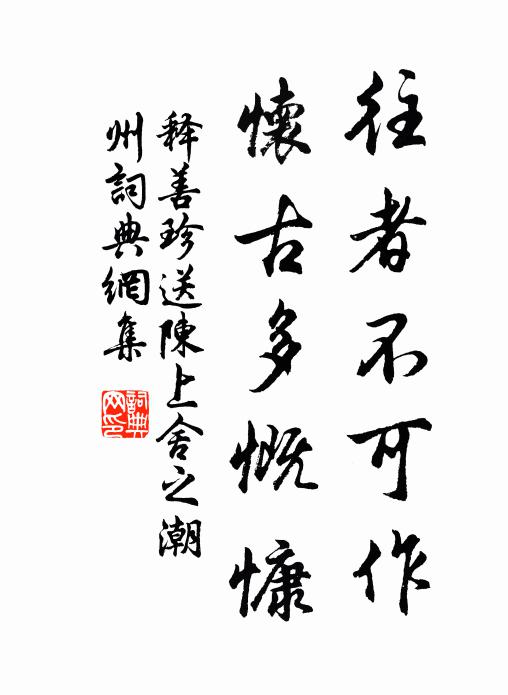 往者不可作
懷古多慨慷
释善珍送陳上舍之潮
州詞典網集
詞典
网印